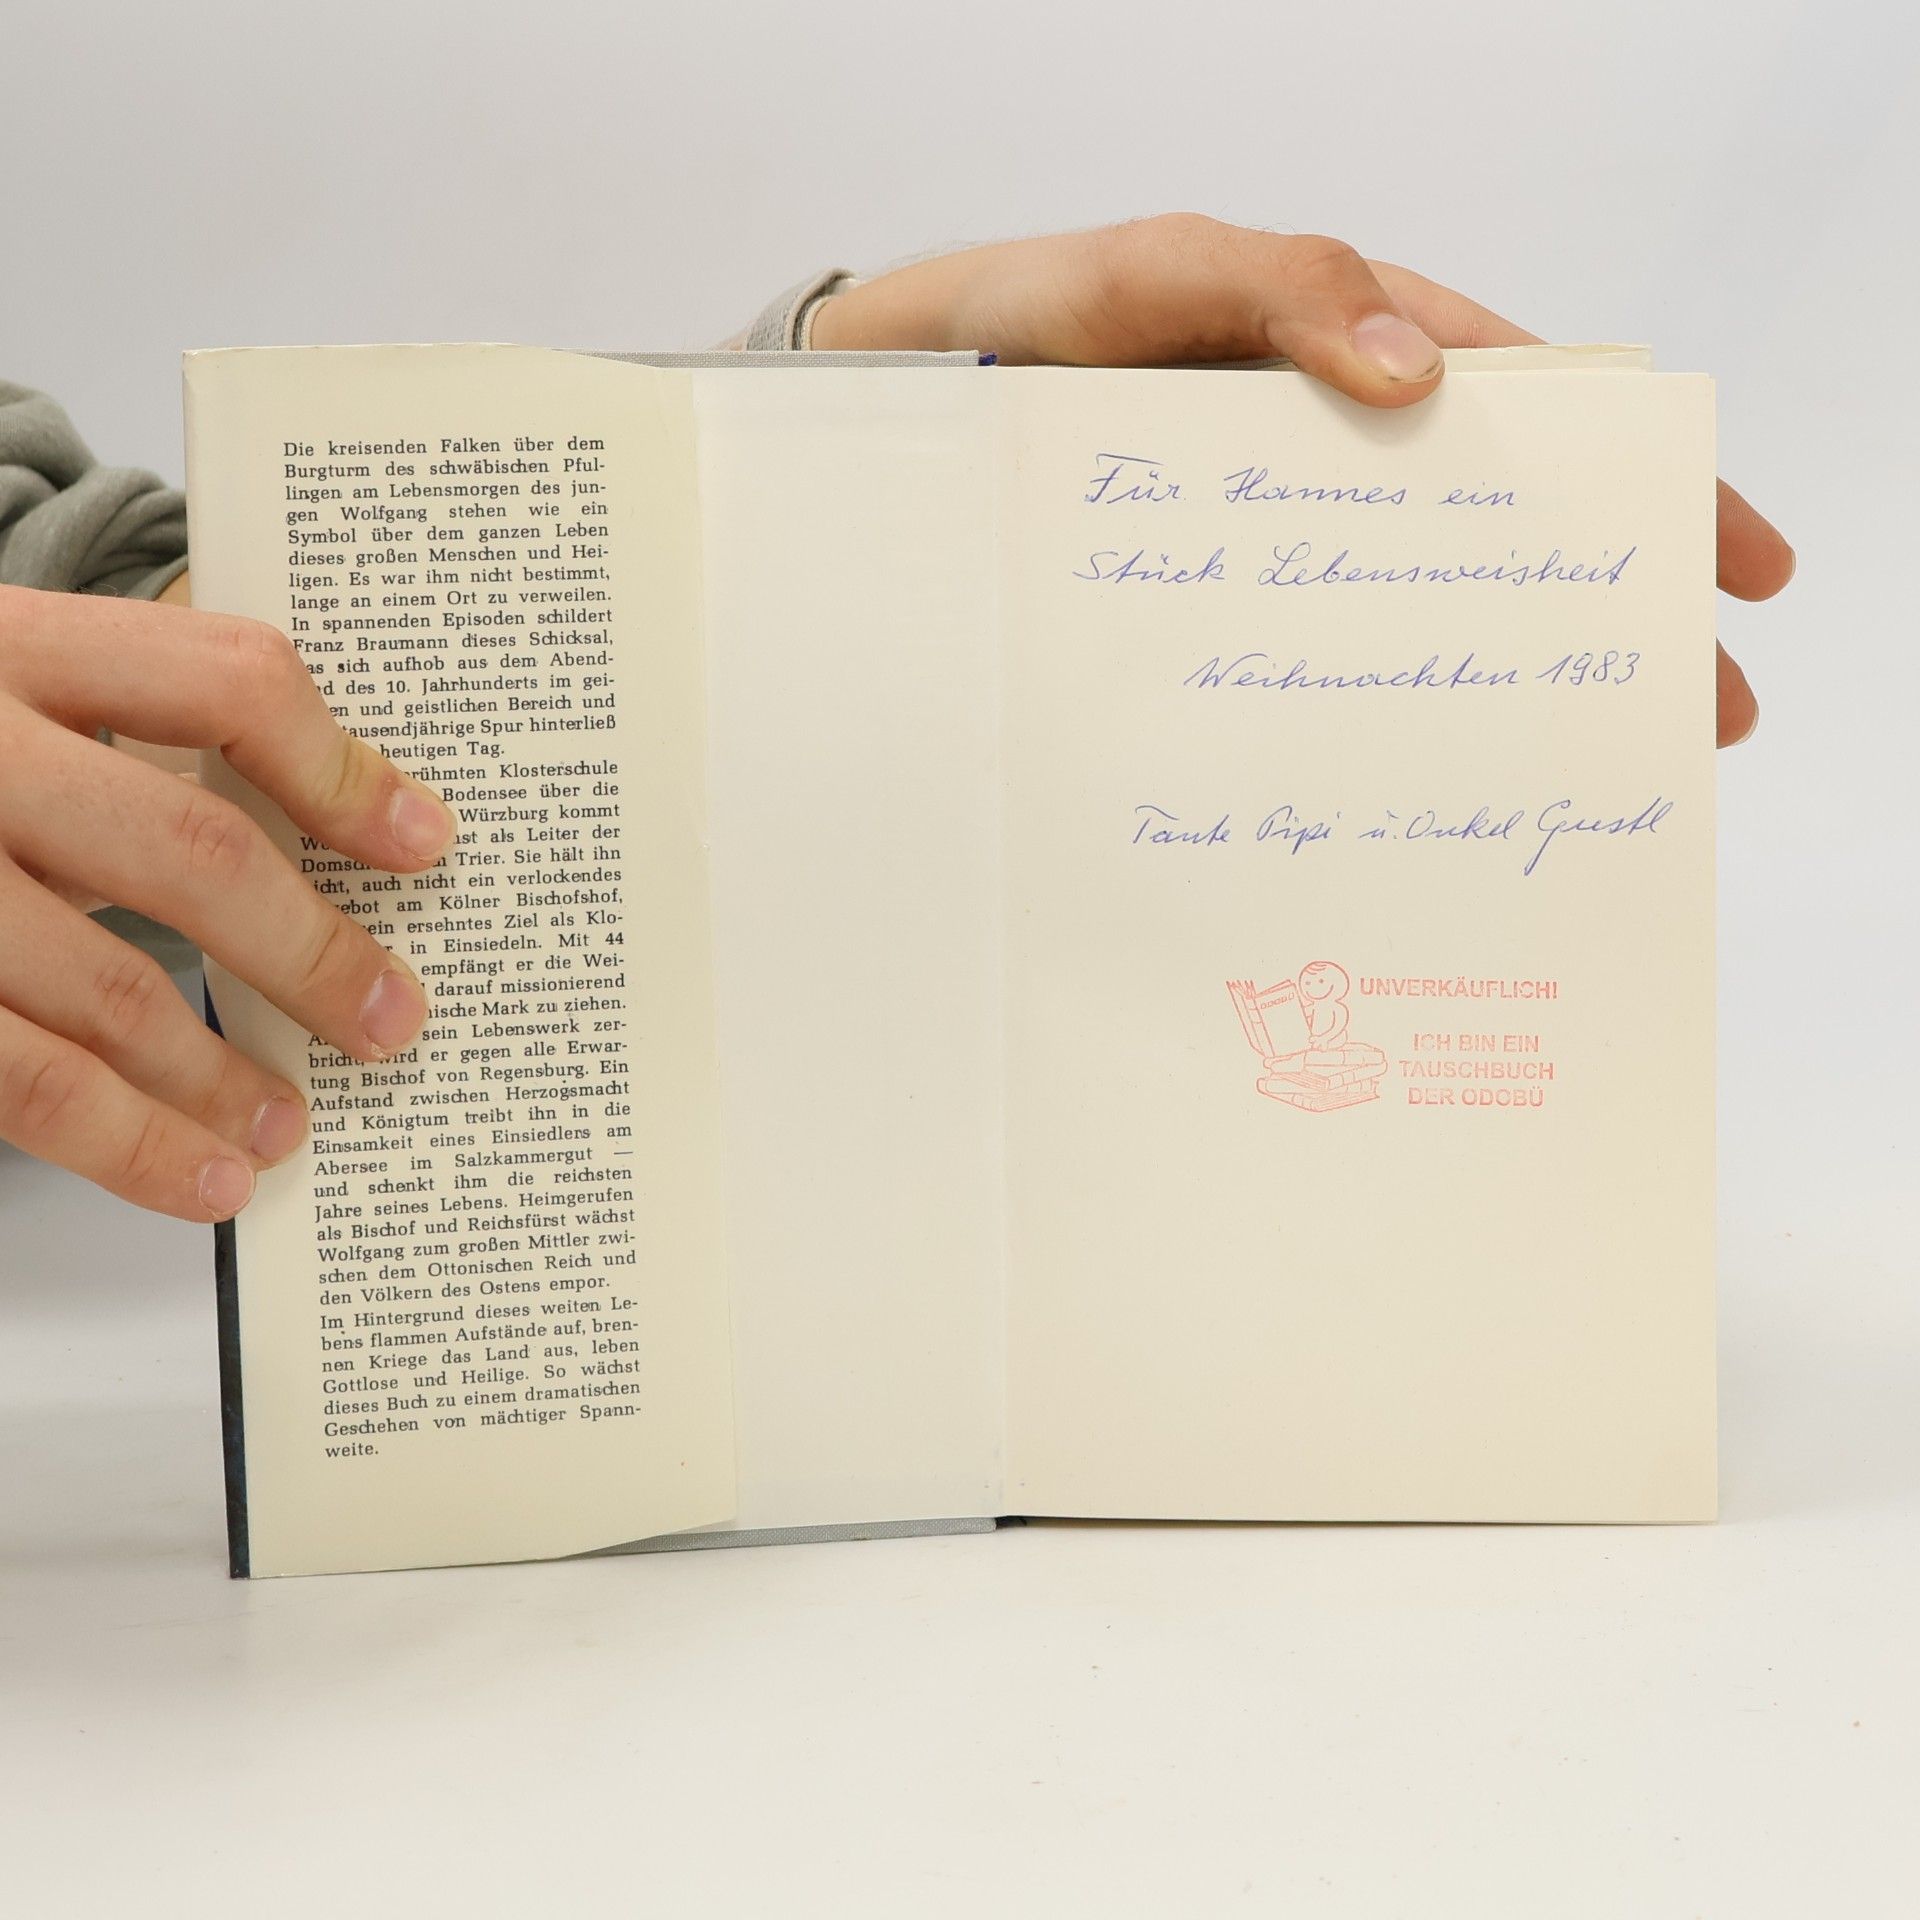 Die kreisenden Falken über dem
Burgturm des schwäbischen Pful-
lingen am Lebensmorgen des jun-
gen Wolfgang stehen wie ein
Symbol über dem ganzen Leben
dieses großen Menschen und Hei-
ligen. Es war ihm nicht bestimmt,
lange an einem Ort zu verweilen.
In spannenden Episoden schildert
Franz Braumann dieses Schicksal,
sich aufhob aus dem Abend-
des 10. Jahrhunderts im gei-
und geistlichen Bereich und
tausendjährige Spur hinterließ
heutigen Tag.
Klosterschule
Bodensee über die
Würzburg kommt
als Leiter der
Trier. Sie hält ihn
auch nicht ein verlockendes
am Kölner Bischofshof,
ersehntes Ziel als Klo-
in Einsiedeln. Mit 44
empfängt er die Wei-
darauf missionierend
Mark zu ziehen.
sein Lebenswerk zer-
bricht, wird er gegen alle Erwar-
tung Bischof von Regensburg. Ein
Aufstand zwischen Herzogsmacht
und Königtum treibt ihn in die
Einsamkeit eines Einsiedlers am
Abersee im Salzkammergut —
und schenkt ihm die reichsten
Jahre seines Lebens. Heimgerufen
als Bischof und Reichsfürst wächst
Wolfgang zum großen Mittler zwi-
schen dem Ottonischen Reich und
den Völkern des Ostens empor.
Im Hintergrund dieses weiten Le-
bens flammen Aufstände auf, bren-
nen Kriege das Land aus, leben
Gottlose und Heilige. So wächst
dieses Buch zu einem dramatischen
Geschehen von mächtiger Spann-
weite.
Für Hannes ein
Stück Lebensweisheit
Weihnachten 1983
Tante Pipi u. Onkel Gustl
UNVERKÄUFLICH!
ICH BIN EIN
TAUSCHBUCH
DER ODOBÜ